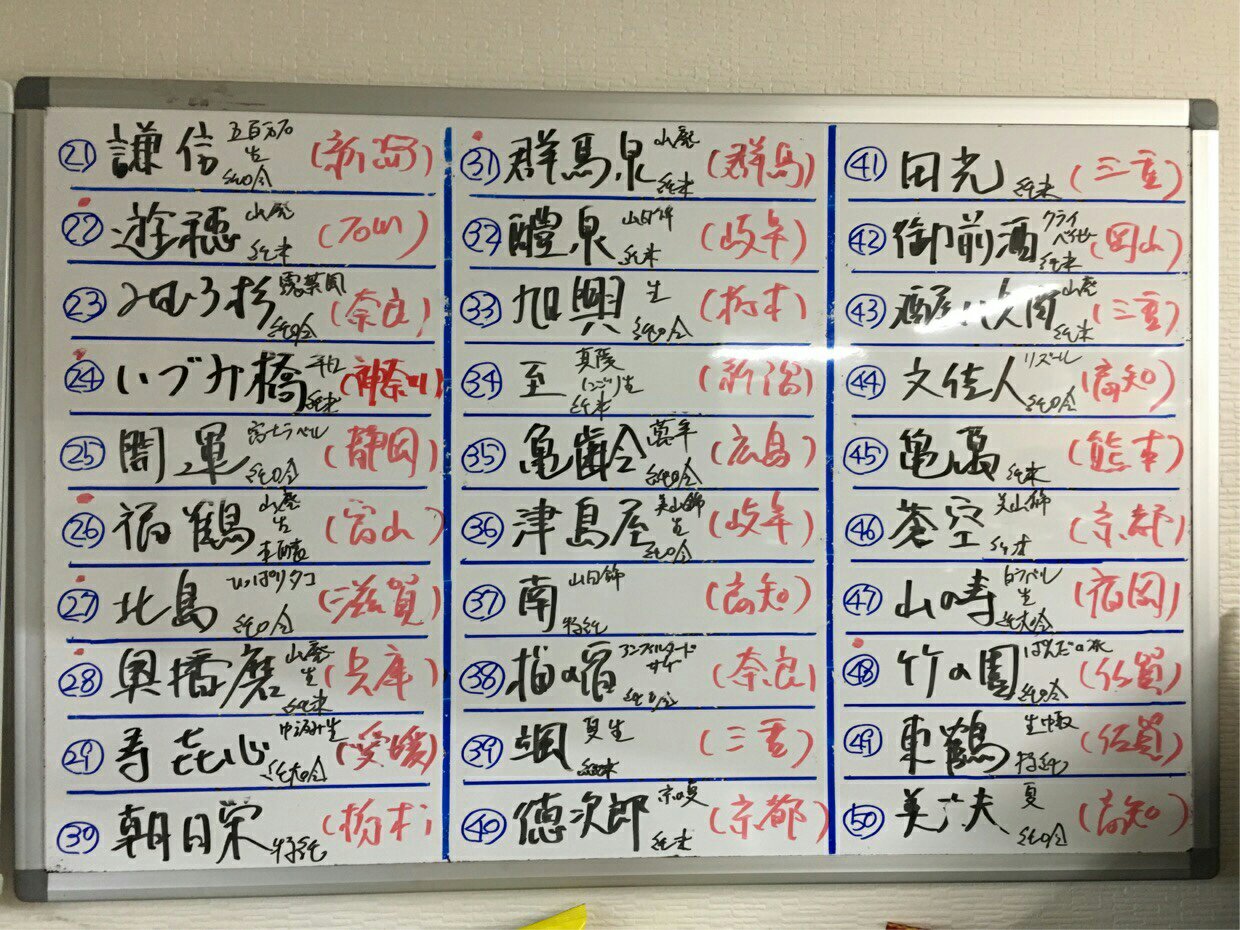 ㉑ 謙信 五百万石 生 純吟 (新潟)
㉒ 遊穂 山廃 純米 (石川)
㉓ みむろ杉 露葉風 純吟 (奈良)
㉔ いづみ橋 純米 (神奈川)
㉕ 開運 富士ラベル 純吟 (静岡)
㉖ 福鶴 山廃 生 (富山)
㉗ 北島 ひっぱりダコ 純吟 (滋賀)
㉘ 奥播磨 山廃 生 純米 (兵庫)
㉙ 寿喜心 中汲み生 純大吟 (愛媛)
㉚ 朝日栄 特純 (栃木)
㉛ 群馬泉 山廃 純米 (群馬)
㉜ 醴泉 山田錦 純米 (岐阜)
㉝ 旭興 生 純吟 (栃木)
㉞ 至 真陵 にごり生 純米 (新潟)
㉟ 亀齢 萬年 純吟 (広島)
㊱ 津島屋 美山錦 生 純吟 (岐阜)
㊲ 南 山田錦 特純 (高知)
㊳ 梅乃宿 アンフィルタード サケ 純吟 (奈良)
㊴ 颯 夏生 純米 (三重)
㊵ 徳次郎 京の夏 純米 (京都)
㊶ 田光 純米 (三重)
㊷ 御前酒 純米 (岡山)
㊸ 酒屋八兵衛 山廃 純米 (三重)
㊹ 文佳人 リズール 純吟 (高知)
㊺ 亀萬 純米 (熊本)
㊻ 蒼空 美山錦 純米 (京都)
㊼ 山の寿 白ラベル 生 純大吟 (福岡)
㊽ 竹の園 ぱんだの水 純吟 (佐賀)
㊾ 東鶴 生中取 特純 (佐賀)
㊿ 美丈夫 夏 純吟 (高知)